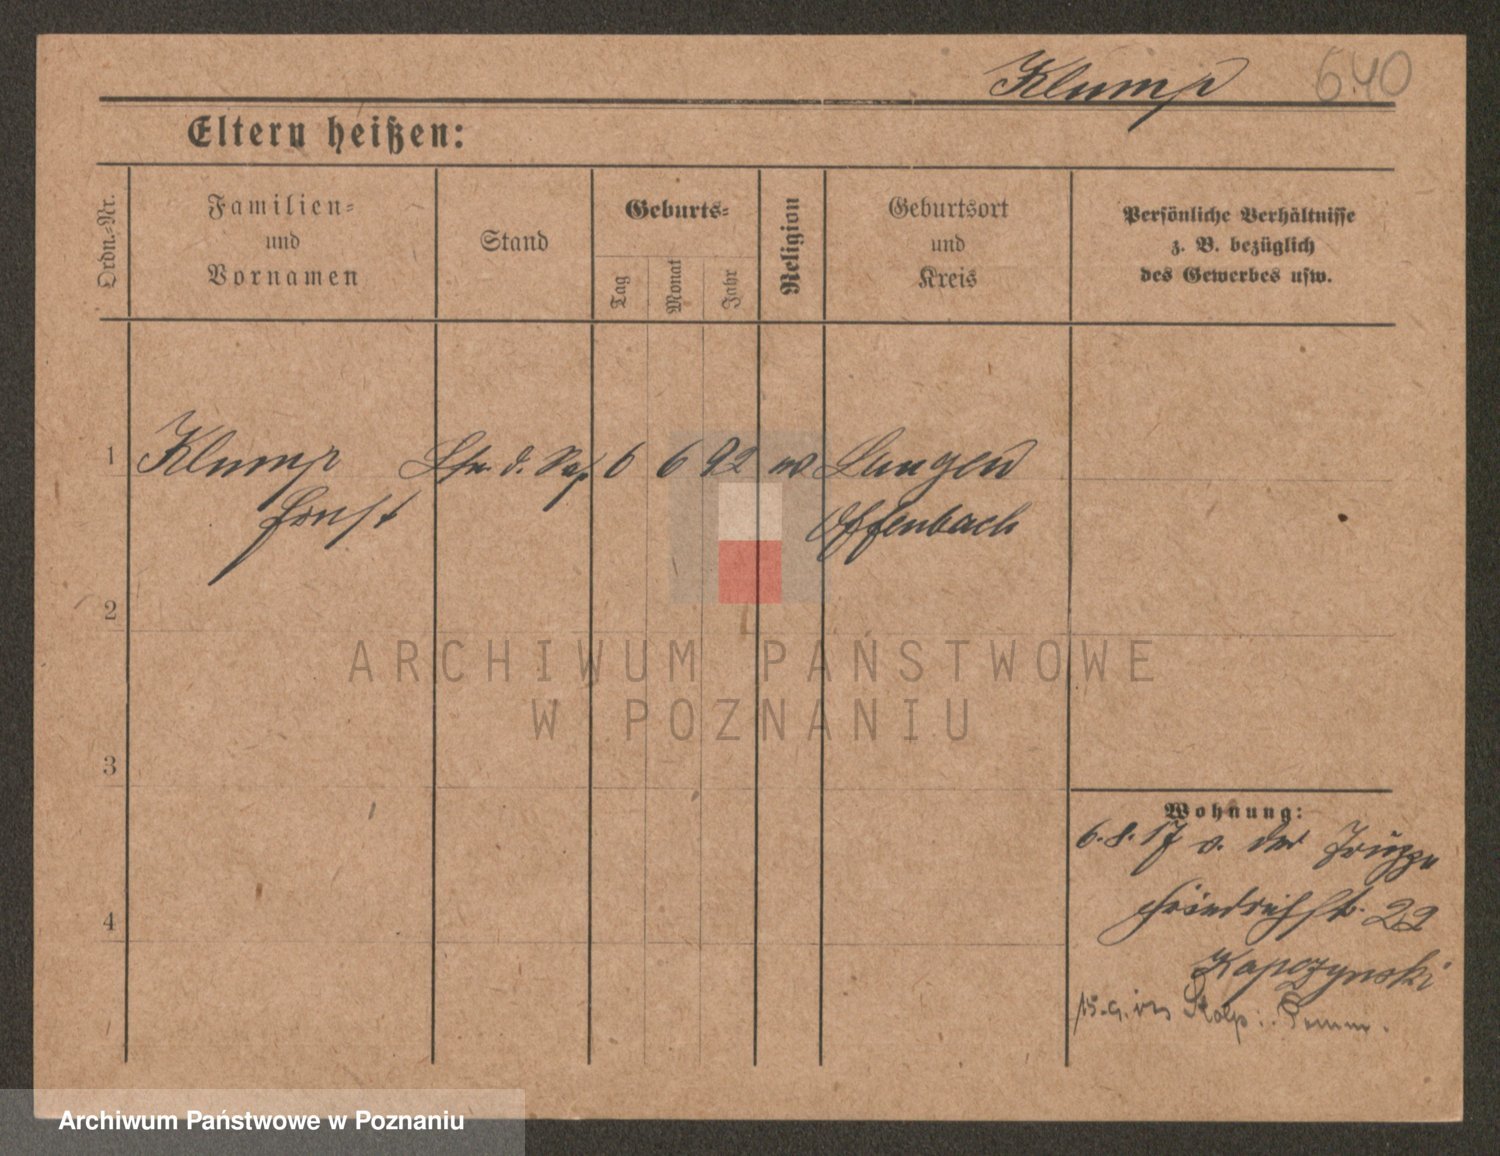 Klump 640
Eltern heißen:
Ordn.-Nr.
Familien-
und
Vornamen
Stand
Geburts-
Tag
Monat
Jahr
Religion
Geburtsort
und
Kreis
Persönliche Verhältnisse
z. B. bezüglich
des Gewerbes usw.
1 Klump d. 6 6 92 Langen
Ernst Offenbach
2
3
4
Wohnung:
6.8.17 v. der Truppe
Friedrichstr. 22
Kapczynski
15.9. Stolp i. Pomm.
ARCHIWUM PAŃSTWOWE
W POZNANIU
Archiwum Państwowe w Poznaniu